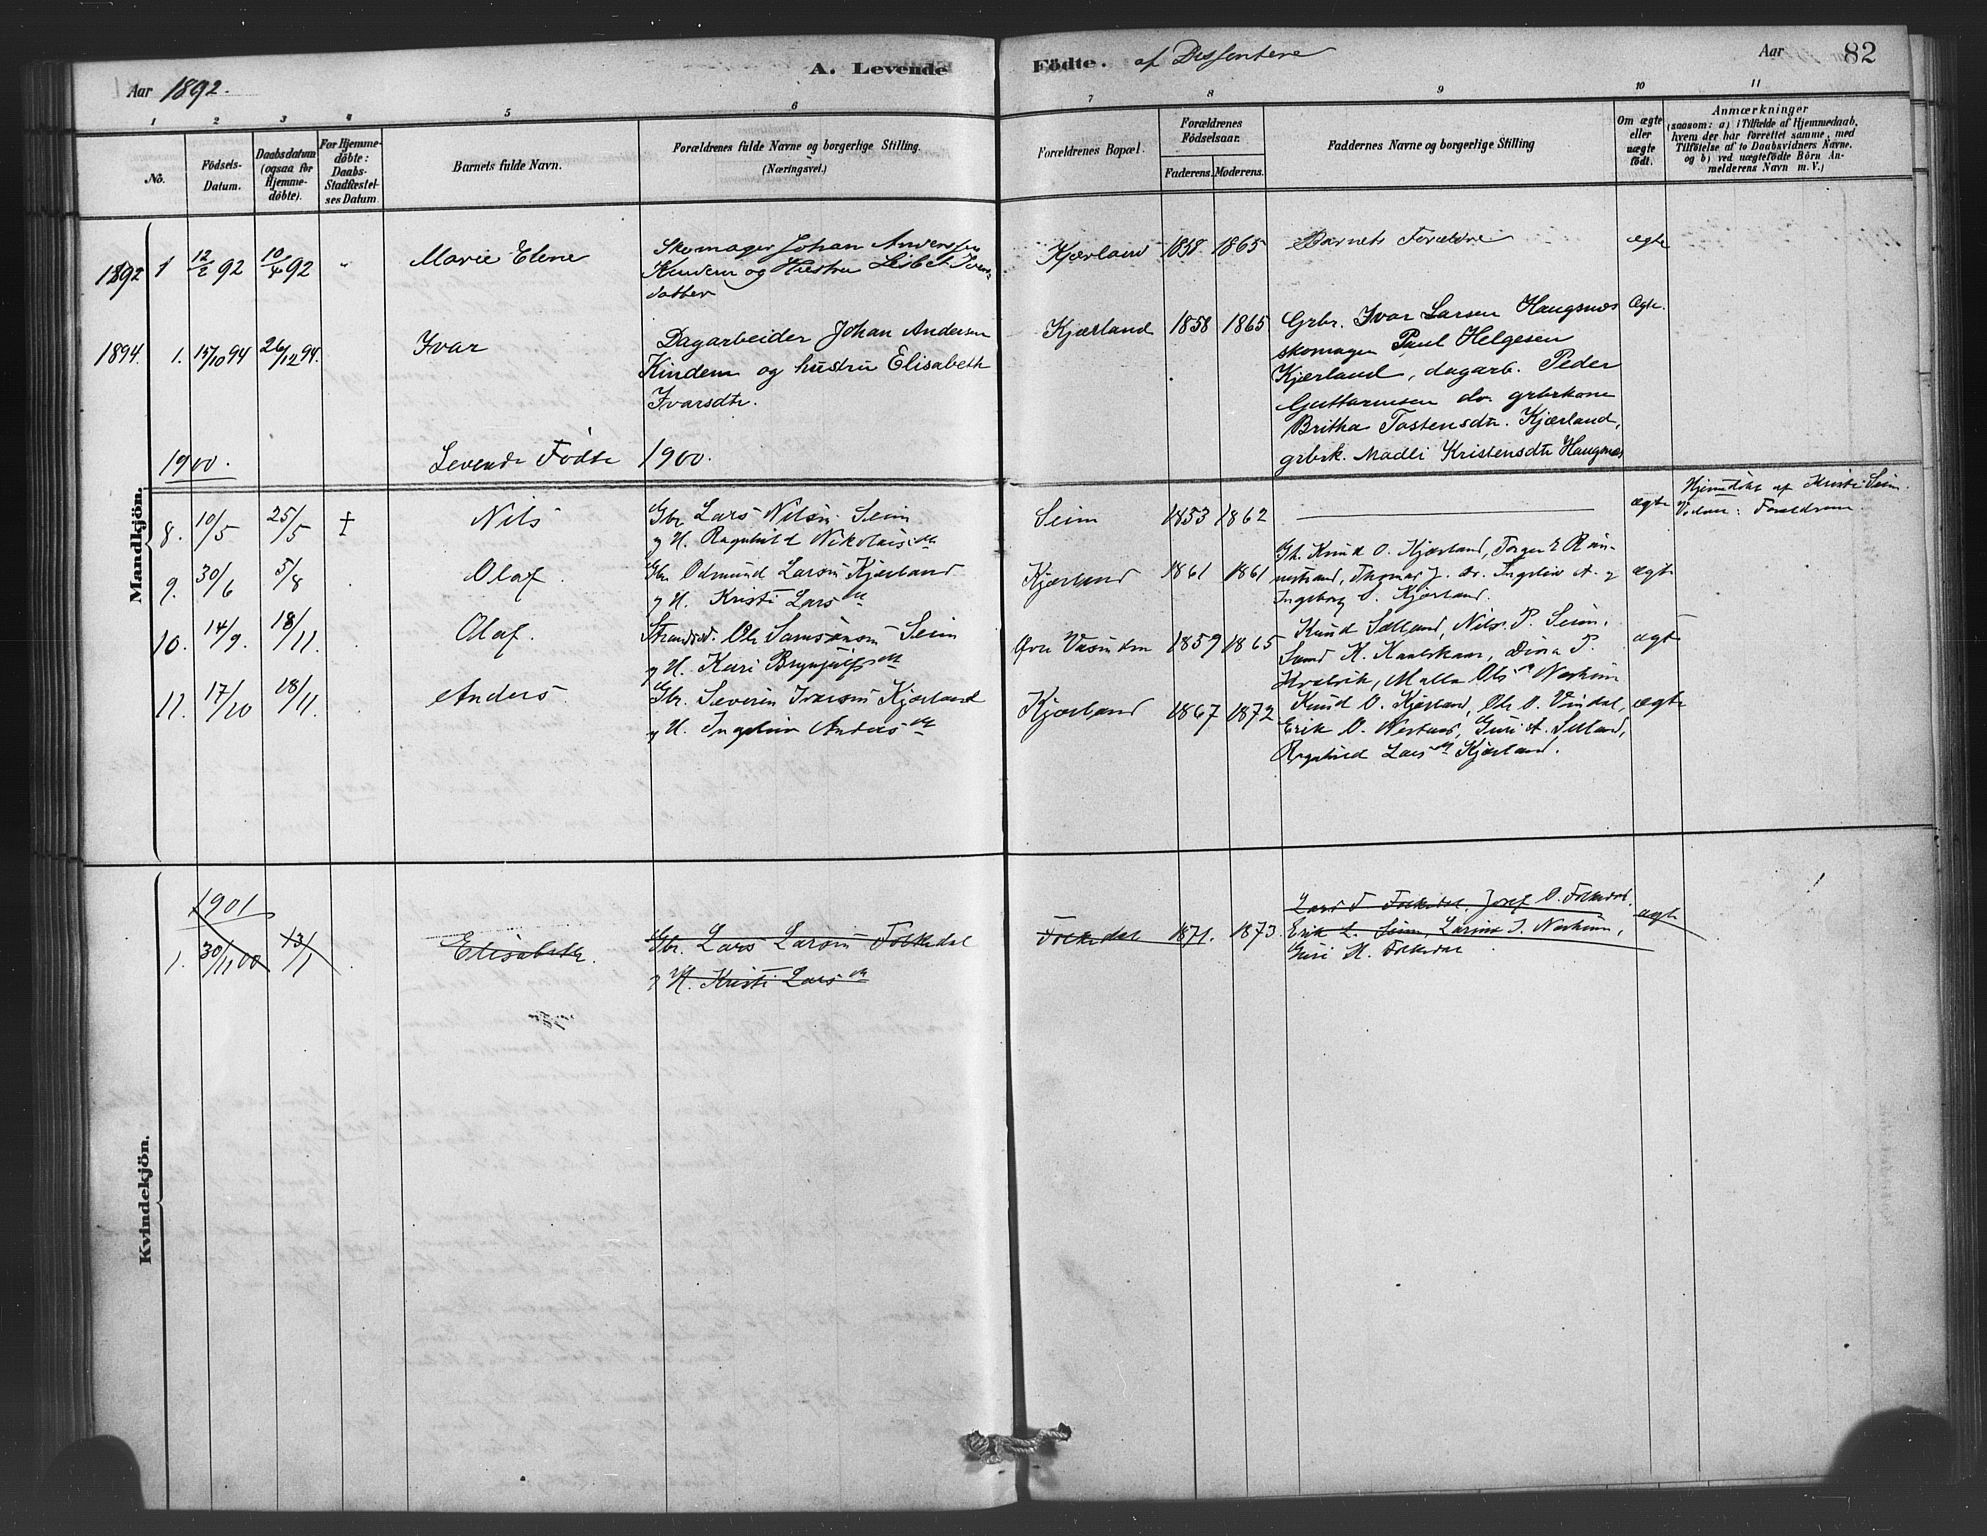 Aar 1892.
A. Levende
Födte. af Dissentere
Aar 82
1 2 3 4 5 6 7 8 9 10 11
No.
Födsels-
Datum.
Daabsdatum
(ogsaa for
Hjemme-
döbte).
For Hjemme-
döbte:
Daabs-
Stadfæstel-
ses Datum
Barnets fulde Navn.
Forældrenes fulde Navne og borgerlige Stilling.
(Næringsvei.)
Forældrenes Bopæl.
Forældrenes
Födselsaar.
Faderens. Moderens.
Faddernes Navne og borgerlige Stilling
Om ægte
eller
uægte
födt.
Anmærkninger
(saasom: a) i Tilfælde af Hjemmedaab,
hvem der har forrettet samme, med
Tilföielse af to Daabsvidners Navne.
og b) ved uægtefödte Börn An-
melderens Navn m. V.)
Mandkjön.
1892 1 12/2 92 10/4 92 " Marie Elene
Skomager Johan Anderssen
Kindem og Hustru Lisbet Ivers-
datter
Kjærland 1858 1865 Barnets Forældre ægte
1894. 1. 15/10 94 26/12 94. Ivar
Dagarbeider Johan Andersen
Kindem og hustru Elisabeth
Ivarsdtr.
Kjærland 1858 1865
Grbr. Ivar Larsen Haugsnes
skomager Paul Helgesen
Kjærland, dagarb. Peder
Guttormsen do. grbrkone
Britha Tostensdtr. Kjærland,
grbrk. Madli Kristensdtr Haugsnes
Ægte.
1900. Levende Födte 1900.
8. 10/5 25/5 † Nils
Gbr Lars Nilsen Seim
og H. Ragnhild Nikolais dtr
Seim 1853 1862 ægte
Hjemdöbt af Kristi Seim.
Vidner: Forældrene
9. 30/6 5/8 . Olaf.
Gbr. Odmund Larsen Kjærland
og H. Kristi Lars dtr
Kjærland 1861 1861
Gb. Knud O. Kjærland, Torger E
Thomas J. do. Ingeleiv A. og
Ingeborg O. Kjærland.
ægte
10. 14/9. 18/11. . Olaf.
Strands. Ole Samsonsen Seim
og H. Kari Brynjulfs dtr
Øvre 1859 1865
Knud Sælland, Nils P. Seim,
K. Dina P.
Malla Ols dtr Nesheim
ægte
11. 17/10 18/11. . Anders.
Gbr. Severin Ivarsen Kjærland
og H. Ingeleiv Anders dtr
Kjærland 1867 1872
Knud O. Kjærland, Ole O. Vindal,
Erik O. Guri A. Selland,
Ragnhild Lars dtr Kjærland.
ægte
Kvindekjön.
1901
1. 30/11 00 13/1 . Elisabeth.
Gbr. Lars Larsen Folkedal
og H. Kristi Lars dtr
Folkedal 1871. 1873.
Lars T. Folkedal, Josef O. Folkedal,
Erik L. Seim, Larina I. Nesheim,
Guri H. Folkedal
ægte